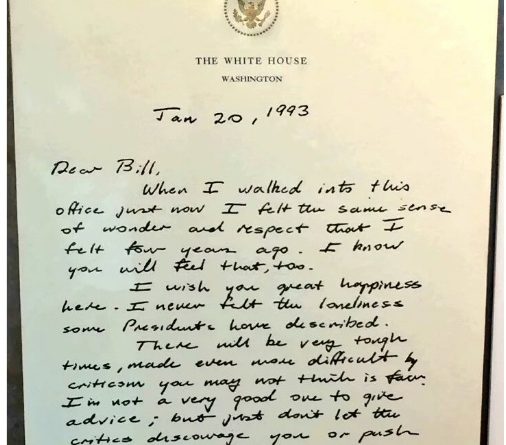 THE WHITE HOUSE
WASHINGTON
Jan 20, 1993
Dear Bill,
When I walked into this
office just now I felt the same sense
of wonder and respect that I
felt four years ago. I know
you will feel that, too.
I wish you great happiness
here. I never felt the loneliness
some Presidents have described.
There will be very tough
times, made even more difficult by
criticism you may not think is fair.
I'm not a very good one to give
advice; but just don't let the
critics discourage you or push